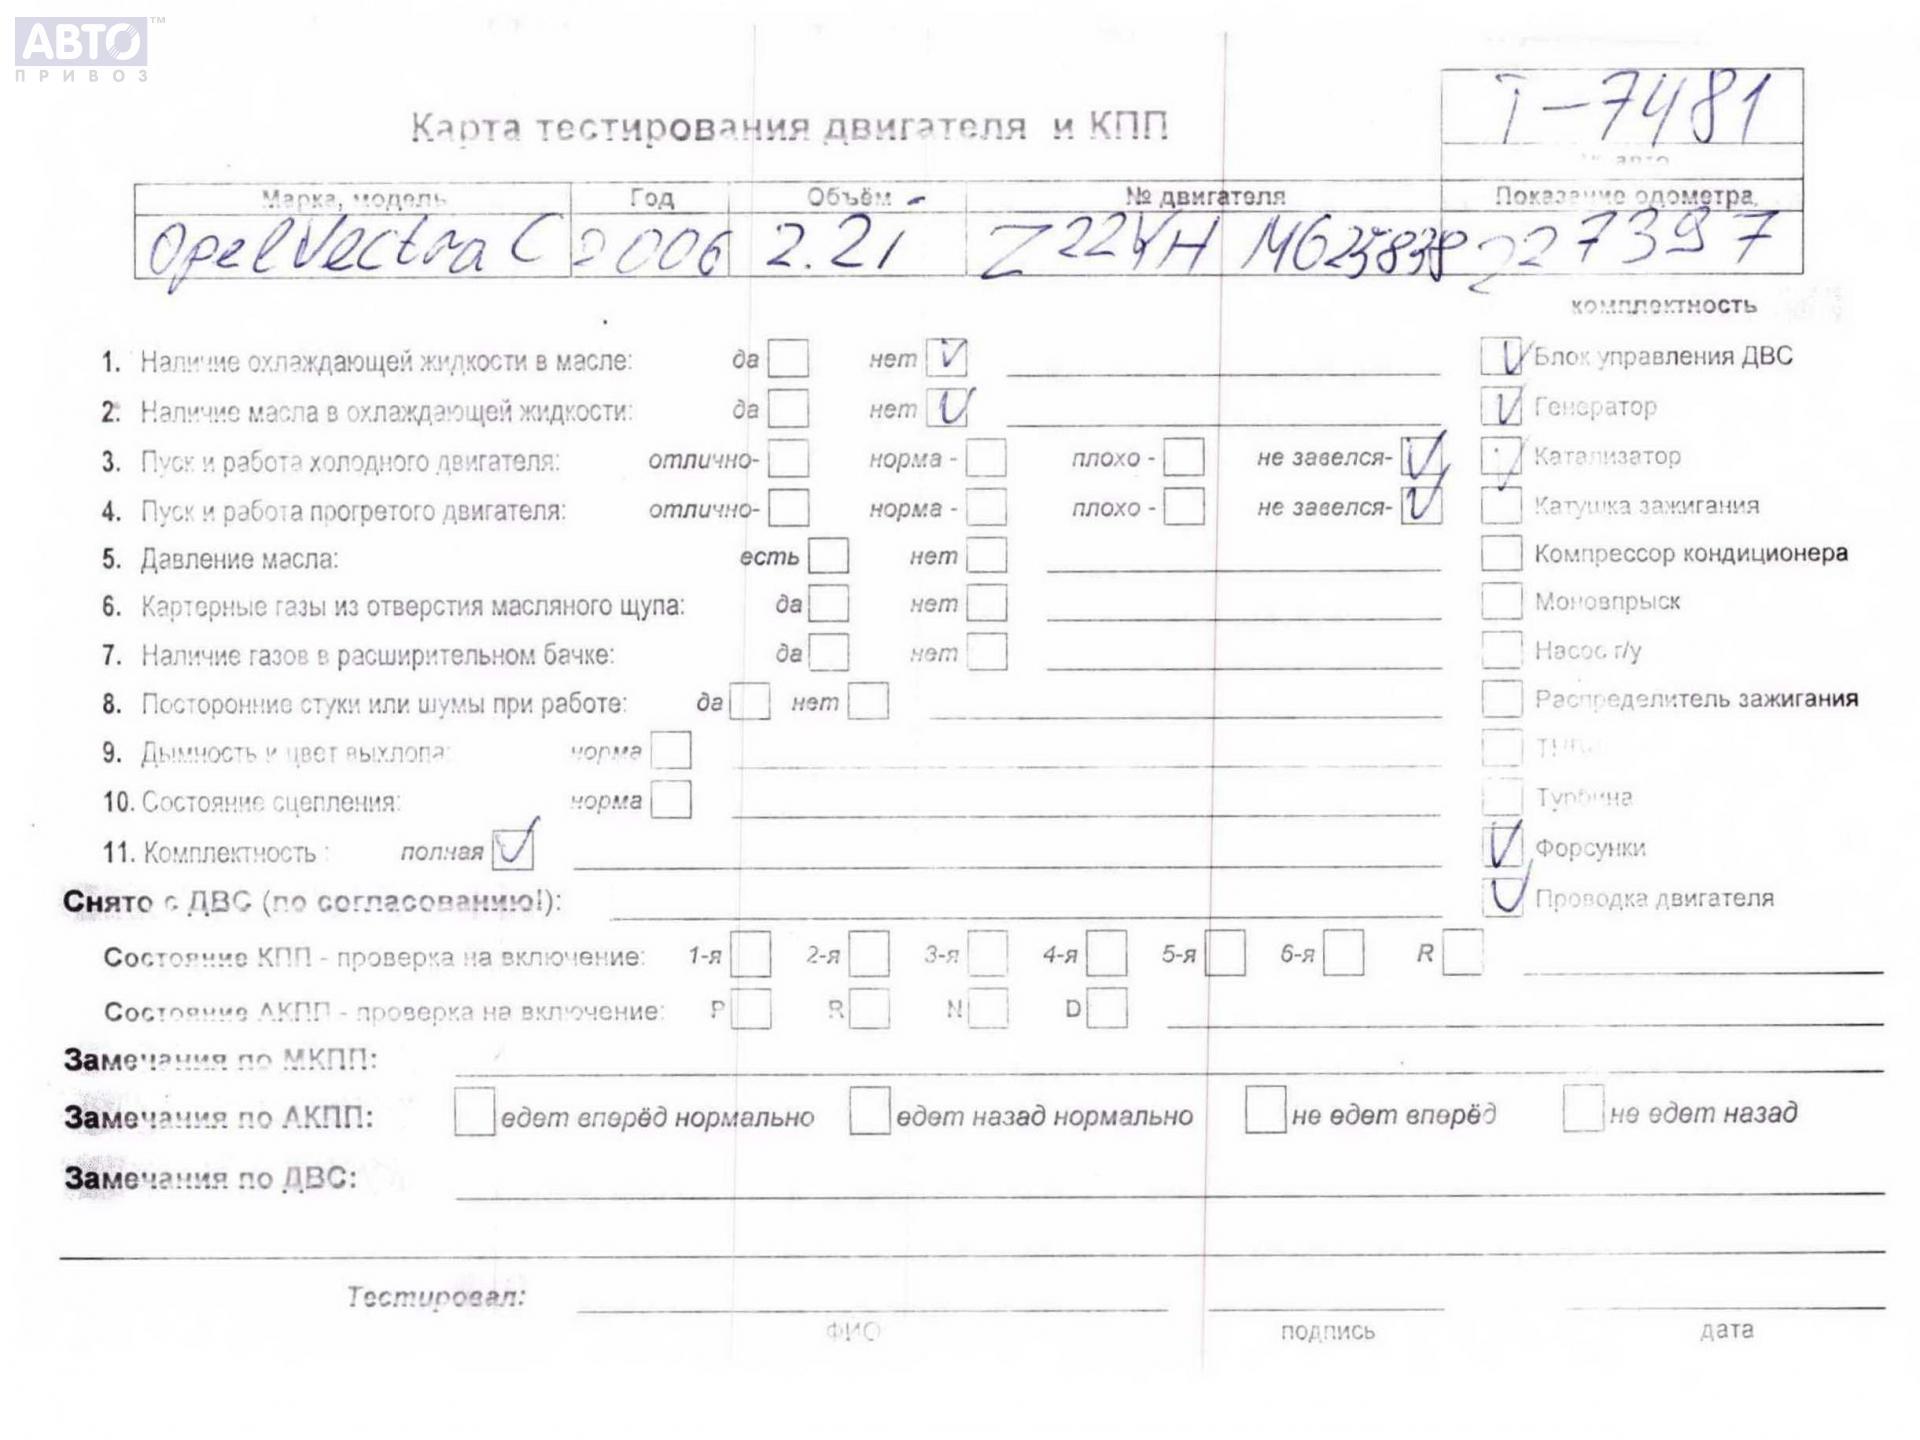 АВТО™
ПРИВОЗ
Т-7481
Карта тестирования двигателя и КПП
№ авто
Марка, модель Год Объём № двигателя Показание одометра,
Opel Vectra C 2006 2.2i Z22YH M625838 227397
комплектность
1. Наличие охлаждающей жидкости в масле: да нет Блок управления ДВС
2. Наличие масла в охлаждающей жидкости: да нет Генератор
3. Пуск и работа холодного двигателя: отлично- норма - плохо - не завелся- Катализатор
4. Пуск и работа прогретого двигателя: отлично- норма - плохо - не завелся- Катушка зажигания
5. Давление масла: есть нет Компрессор кондиционера
6. Картерные газы из отверстия масляного щупа: да нет Моновпрыск
7. Наличие газов в расширительном бачке: да нет Насос г/у
8. Посторонние стуки или шумы при работе: да нет Распределитель зажигания
9. Дымность и цвет выхлопа: норма ТНВД
10. Состояние сцепления: норма Турбина
11. Комплектность : полная Форсунки
Снято с ДВС (по согласованию!): Проводка двигателя
Состояние КПП - проверка на включение: 1-я 2-я 3-я 4-я 5-я 6-я R
Состояние АКПП - проверка на включение: P R N D
Замечания по МКПП:
Замечания по АКПП: едет вперёд нормально едет назад нормально не едет вперёд не едет назад
Замечания по ДВС:
Тестировал:
ФИО подпись дата